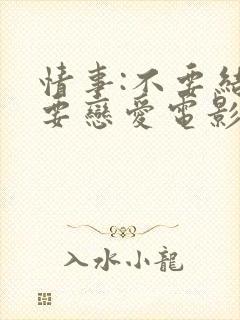 情事:不要結
要戀愛電影
入水小龍